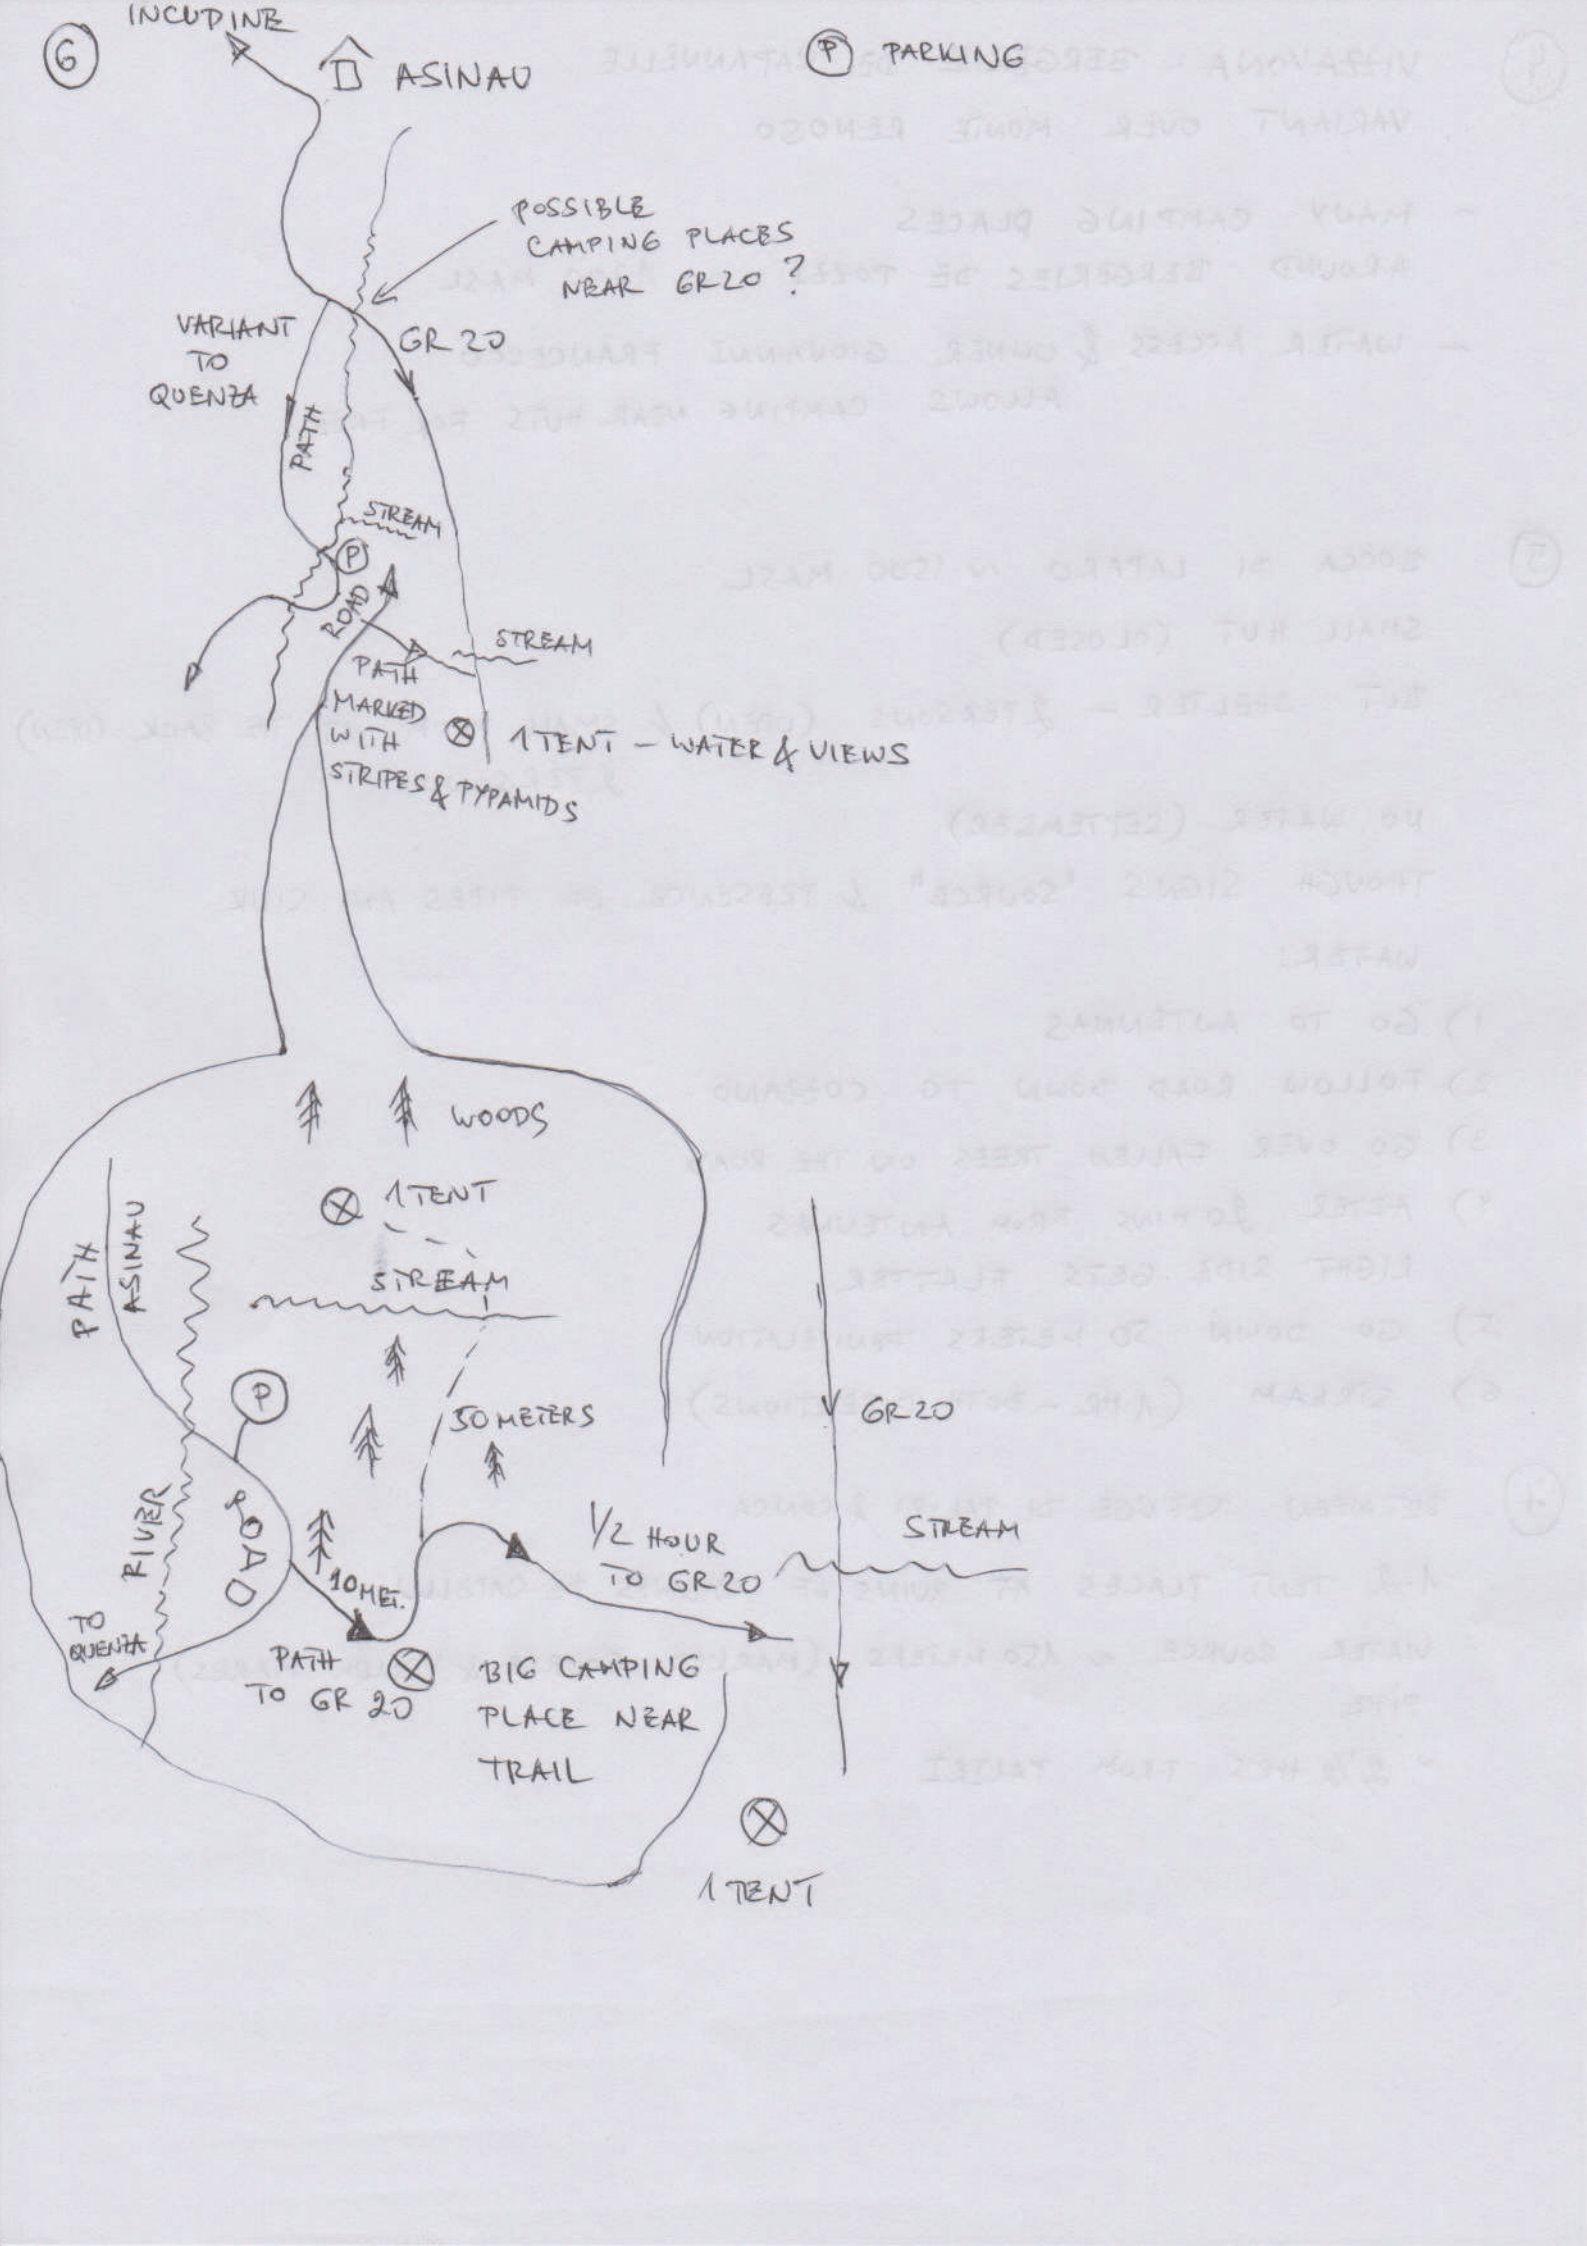 6
INCUDINE
ASINAU
P PARKING
POSSIBLE
CAMPING PLACES
NEAR GR20 ?
VARIANT
TO
QUENZA
GR 20
PATH
STREAM
P
ROAD
STREAM
PATH
MARKED
WITH
STRIPES & PYPAMIDS
1 TENT - WATER & VIEWS
WOODS
1 TENT
PATH
ASINAU
STREAM
P
50 METERS
GR 20
RIVER
ROAD
1/2 HOUR
TO GR 20
STREAM
10 MET.
TO
QUENZA
PATH
TO GR 20
BIG CAMPING
PLACE NEAR
TRAIL
1 TENT